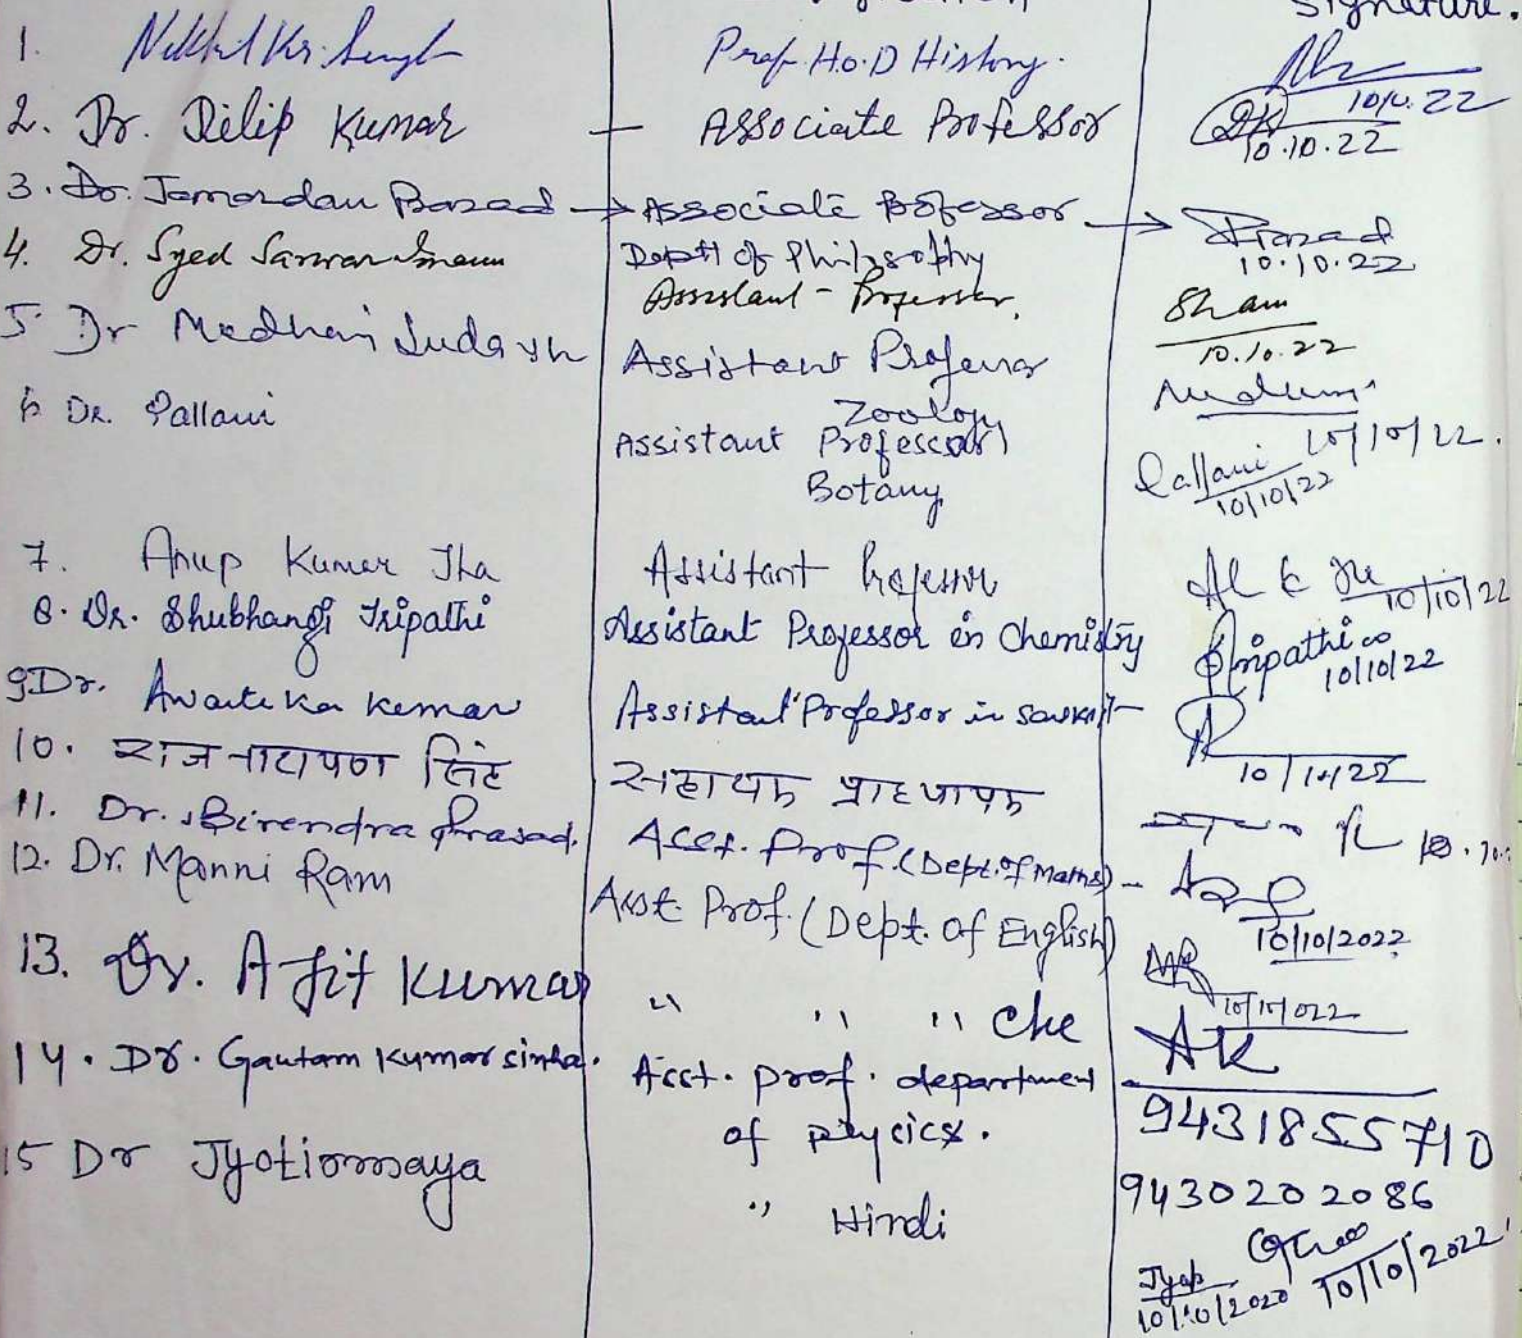 Signature.
1. Nikhil Kr. Singh Prof. H.O.D History.
10.10.22
2. Dr. Dilip Kumar — Associate Professor DK
10.10.22
3. Dr. Janardan Prasad → Associate Professor → Prasad
Deptt of Philosophy 10.10.22
4. Dr. Syed Sarwar Imam Assistant - Professor.
10.10.22
5 Dr Madhavi Sudarsh Assistant Professor
Zoology 10/10/22.
6 Dr. Pallavi Assistant Professor Pallavi
Botany 10/10/22
7. Anup Kumar Jha Assistant Professor
10/10/22
8. Dr. Shubhangi Tripathi Assistant Professor in Chemistry Tripathi
10/10/22
9 Dr. Awaiteka Kumar Assistant Professor in Sanskrit
10/10/22
10. राज नारायण सिंह सहायक प्राध्यापक
11. Dr. Birendra Prasad. Asst. Prof. (Dept. of Maths) -
10/10/2022
12. Dr. Manni Ram Asst. Prof. (Dept. of English)
10/10/022
13. Dr. Ajit Kumar " " " Che AK
9431855710
14. Dr. Gautam Kumar sinha. Asst. prof. department
of physics.
9430202086
10/10/2022
15 Dr Jyotirmaya " Hindi Jyoti
10/10/2020